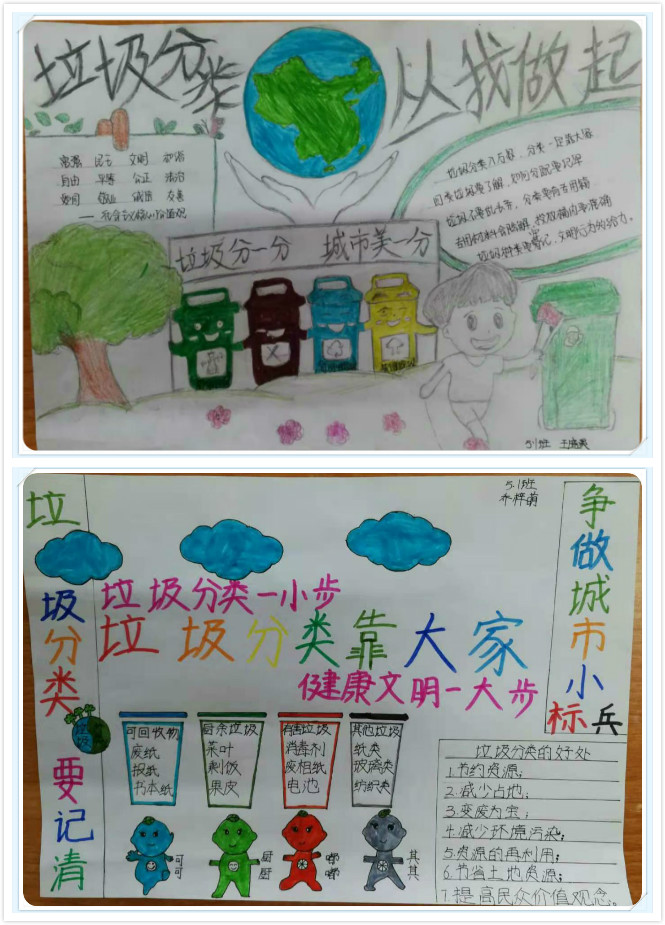 垃圾分类 从我做起
富强 民主 文明 和谐
自由 平等 公正 法治
爱国 敬业 诚信 友善
——社会主义核心价值观
垃圾分类人人好,分类一定靠大家
垃圾分一分 城市美一分
5.1班
5.1班
垃圾分类 要记清
垃圾分类一小步
垃圾分类靠大家
健康文明一大步
争做城市小标兵
可回收物
废纸
报纸
书本纸
厨余垃圾
茶叶
剩饭
果皮
有害垃圾
消毒剂
废相纸
电池
其他垃圾
纸类
玻璃类
纺织类
可可
厨厨
其其
垃圾分类的好处
1.节约资源;
2.减少占地;
3.变废为宝;
4.减少环境污染;
5.资源的再利用;
6.节省土地资源;
7.提高民众价值观念。